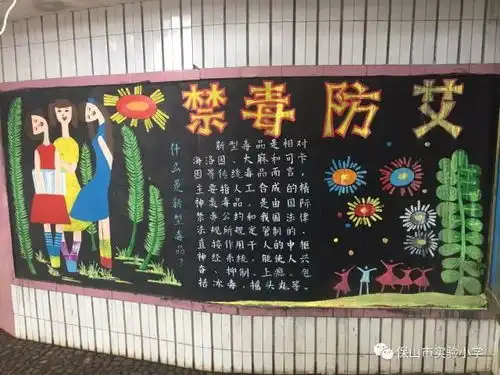 禁毒防艾
什么是新型毒品?
新型毒品是相对
海洛因、大麻和可卡
因等传统毒品而言,
主要指人工合成的精
神类毒品,是由国际
禁毒公约和我国法律
法规所规定管制的,
直接作用于人的中枢
神经系统,能使人兴
奋、抑制、上瘾。包
括冰毒、摇头丸等。
保山市实验小学